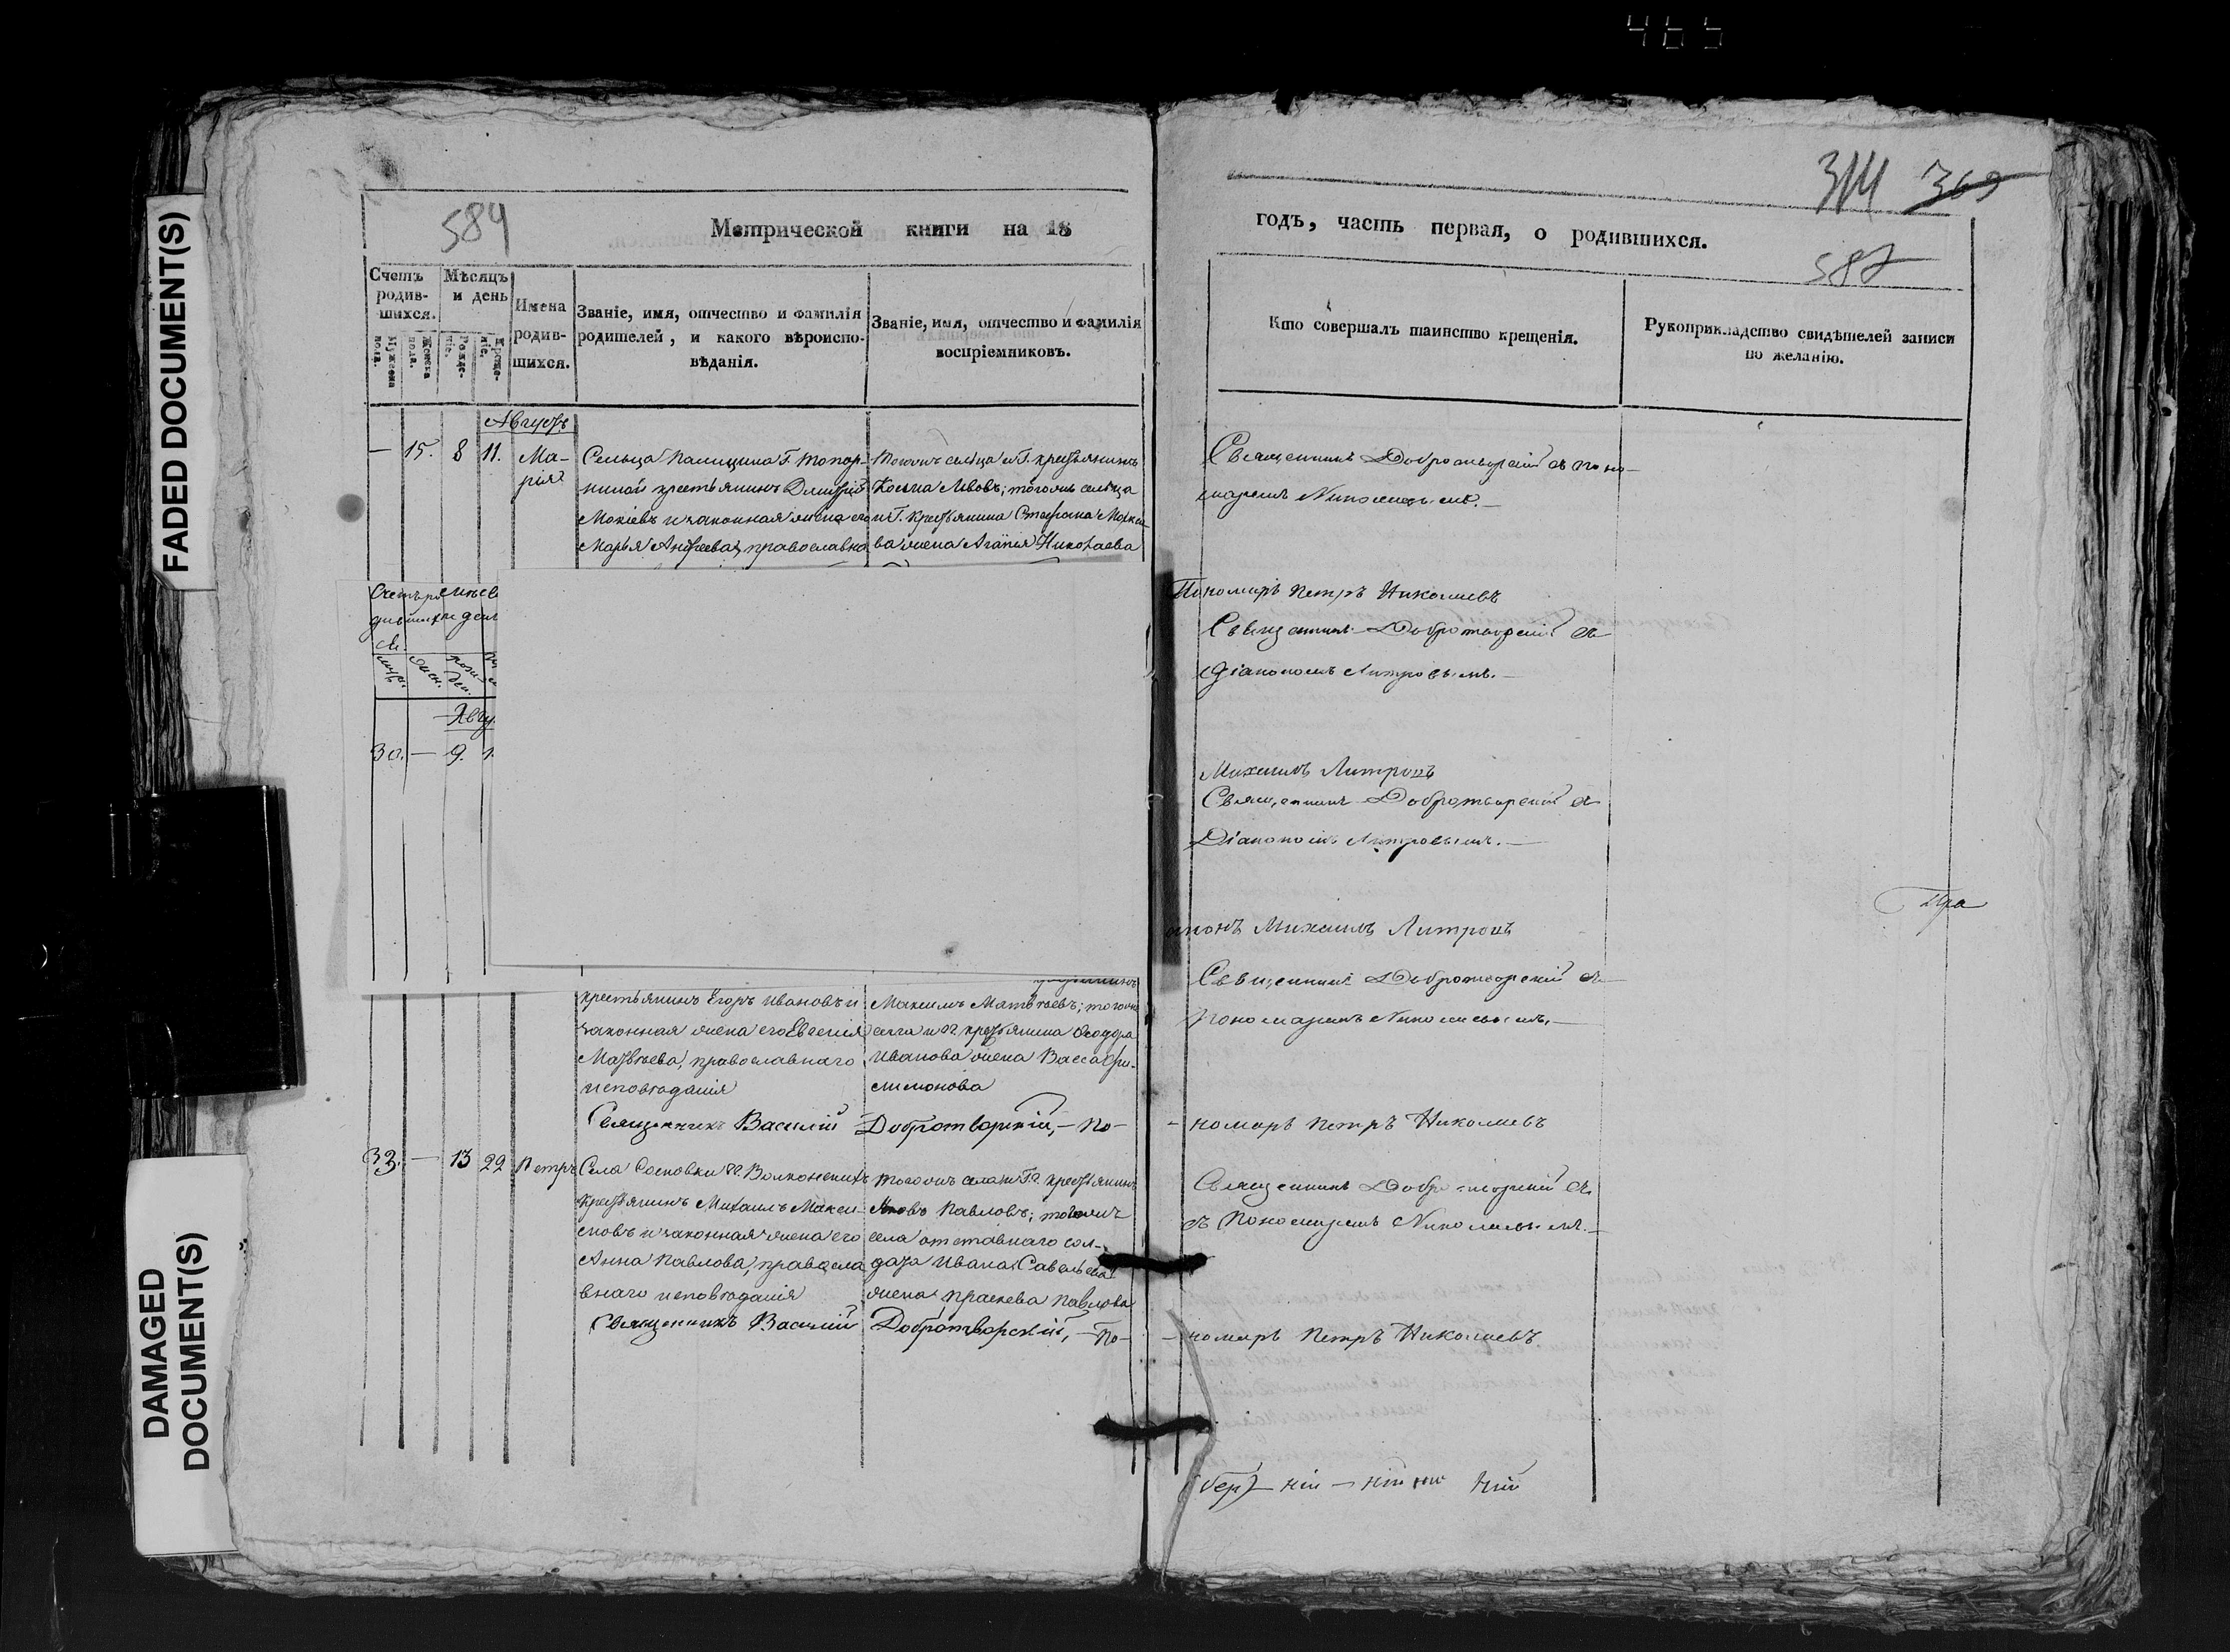 465
FADED DOCUMENT(S)
DAMAGED
DOCUMENT(S)
584
Метрической книги на 18
Счетъ
родив-
шихся.
Мужеска
пола.
Женска
пола.
Мѣсяцъ
и день
Рожде-
нія.
Креще-
нія.
Имена
родив-
шихся.
Званіе, имя, отчество и фамилія
родителей, и какого вѣроиспо-
вѣданія.
Званіе, имя, отчество и фамилія
воспріемниковъ.
Августъ
— 15. 8 11.
Ма-
рія
Сельца Палицина Г. Топор-
ниной крестьянинъ Дмитрій
Мокіевъ и законная жена его
Марья Андреева, православна
Тогожъ сельца и Г. крестьянинъ
Косьма Львовъ; тогожъ сельца
и Г. крестьянина Стефана
ва жена Агапія Николаева
Счетъ ро
дившихся
Мѣся
и ден
муж.
жен.
рож-
ден.
Авгу.
30. — 9. 1.
крестьянинъ Егоръ Ивановъ и
законная жена его Евгенія
Матвѣева, православнаго
исповѣданія
Максимъ Матвѣевъ; тогожъ
села и гг. крестьянина Ѳеодора
Иванова жена Васса Фи-
лимонова
Священникъ Василій Добротворскій, — По-
33. — 13 22 Петръ
Села Сосновки гг. Волконскихъ
крестьянинъ Михаилъ Макси-
мовъ и законная жена его
Анна Павлова, правосла
внаго исповѣданія
тогожъ села и Гг. крестьянинъ
Яковъ Павловъ; тогожъ
села отставнаго сол-
дата Ивана Савельева
жена Праскева Павлова
Священникъ Василій Добротворскій, — По-
314 369
587
годъ, часть первая, о родившихся.
Кто совершалъ таинство крещенія.
Рукоприкладство свидѣтелей записи
по желанію.
Священникъ Добротворскій съ поно-
маремъ Николаевымъ. —
Пономарь Петръ Николаевъ
Священникъ Добротворскій съ
діакономъ Литровымъ. —
Михаилъ Литровъ
Священникъ Добротворскій съ
Діакономъ Литровымъ. —
аконъ Михаилъ Литровъ
Священникъ Добротворскій съ
пономаремъ Николаевымъ. —
- номарь Петръ Николаевъ
Священникъ Добротворскій съ
съ Пономаремъ Николаевымъ. —
- номарь Петръ Николаевъ